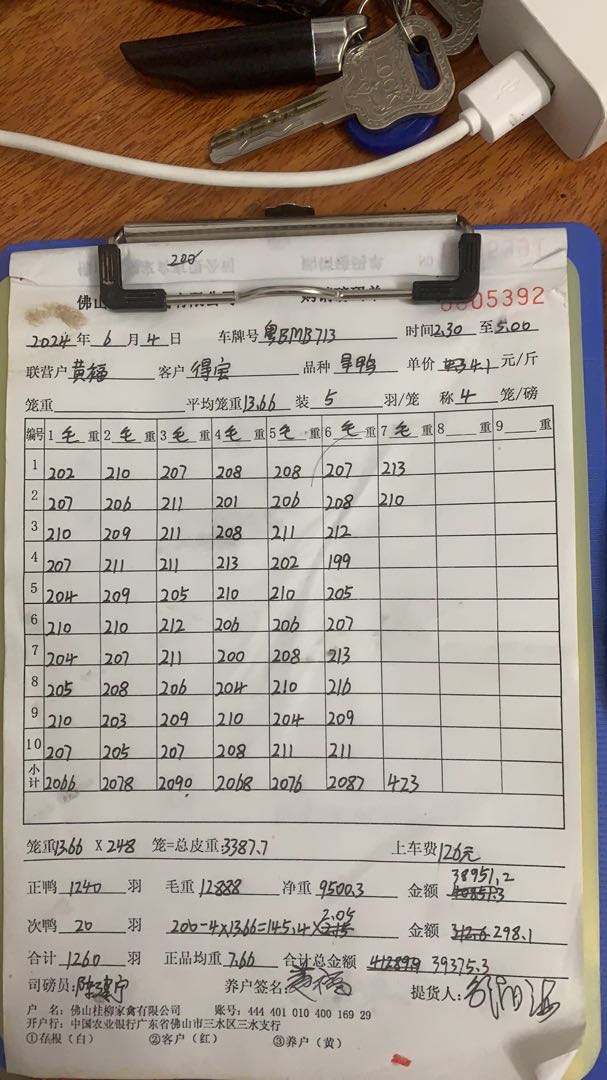 LOCK
200
佛山
有限公司
0005392
2024年6月4日 车牌号粤BMB713 时间2.30至5.00
联营户黄福 客户得宝 品种旱鸭 单价4.1元/斤
笼重 平均笼重13.66 装5羽/笼 称4笼/磅
编号 1毛重 2毛重 3毛重 4毛重 5毛重 6毛重 7毛重 8重 9重
1 202 210 207 208 208 207 213
2 207 206 211 201 206 208 210
3 210 209 211 208 211 212
4 207 211 211 213 202 199
5 204 209 205 210 210 205
6 210 210 212 206 206 207
7 204 207 211 200 208 213
8 205 208 206 204 210 216
9 210 203 209 210 204 209
10 207 205 207 208 211 211
小计 2066 2078 2090 2068 2076 2087 423
笼重13.66 X 248 笼=总皮重:3387.7 上车费126元
38951.2
正鸭1240羽 毛重12888 净重9500.3 金额40851.3
2.05
次鸭20羽 200-4x13.66=145.4x 金额 298.1
合计1260羽 正品均重7.66 合计总金额 39375.3
司磅员: 养户签名:黄福 提货人:
户 名:佛山桂柳家禽有限公司 账号:444 401 010 400 169 29
开户行:中国农业银行广东省佛山市三水区三水支行
①存根(白) ②客户(红) ③养户(黄)